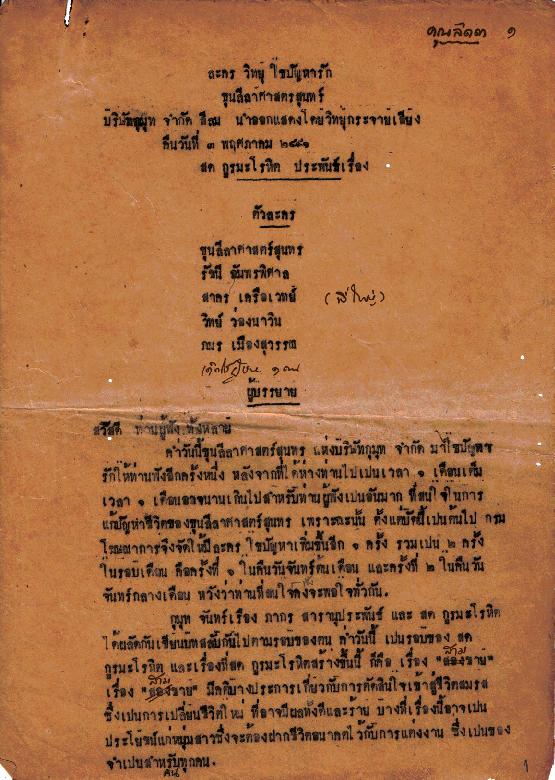 คุณลิดดา ๑
ละคร วิทยุ ไขปัญหารัก
ขุนลีลาศาสตรสุนทร์
บริษัทกุมุท จำกัด สีลม นำออกแสดงโดยวิทยุกระจายเสียง
คืนวันที่ ๓ พฤษภาคม ๒๔๙๑
สด กูรมะโรหิต ประพันธ์เรื่อง
ตัวละคร
ขุนลีลาศาสตร์สุนทร
รัชนี จันทรพิศาล
สาคร เครือเวทย์ (สีใหญ่)
วิทย์ ว่องนาวิน
ภมร เมืองสุวรรณ
ผู้บรรยาย
สวัสดี ท่านผู้ฟัง ทั้งหลาย
ค่ำวันนี้ขุนลีลาศาสตร์สุนทร แห่งบริษัทกุมุท จำกัด มาไขปัญหา
รักให้ท่านฟังอีกครั้งหนึ่ง หลังจากที่ได้ห่างท่านไปเปนเวลา ๑ เดือนเต็ม
เวลา ๑ เดือนอาจนานเกินไปสำหรับท่านผู้ฟังเปนอันมาก ที่สนใจในการ
แก้ปัญหาชีวิตของขุนลีลาศาสตร์สุนทร เพราะฉะนั้น ตั้งแต่บัดนี้เปนต้นไป กรม
โฆษณาการจึงจัดให้มีละคร ไขปัญหาเพิ่มขึ้นอีก ๑ ครั้ง รวมเปน ๒ ครั้ง
ในรอบเดือน คือครั้งที่ ๑ ในคืนวันจันทร์ต้นเดือน และครั้งที่ ๒ ในคืนวัน
จันทร์กลางเดือน หวังว่าท่านที่สนใจคงจะพอใจทั่วกัน.
กุมุท จันทร์เรือง ภากร สารานุประพันธ์ และ สด กูรมะโรหิต
ได้ผลัดกันเขียนบทสลับกันไปตามรอบของตน ค่ำวันนี้ เปนรอบของ สด
กูรมะโรหิต และเรื่องที่สด กูรมะโรหิตสร้างขึ้นนี้ ก็คือ เรื่อง "สามชาย"
เรื่อง "สามชาย" มีคติบางประการเกี่ยวกับการตัดสินใจเข้าสู่ชีวิตสมรส
ซึ่งเปนการเปลี่ยนชีวิตใหม่ ที่อาจมีผลทั้งดีและร้าย บางทีเรื่องนี้อาจเปน
ประโยชน์แก่หนุ่มสาวซึ่งจะต้องฝากชีวิตอนาคตไว้กับการแต่งงาน ซึ่งเปนของ
จำเปนสำหรับทุกคน.